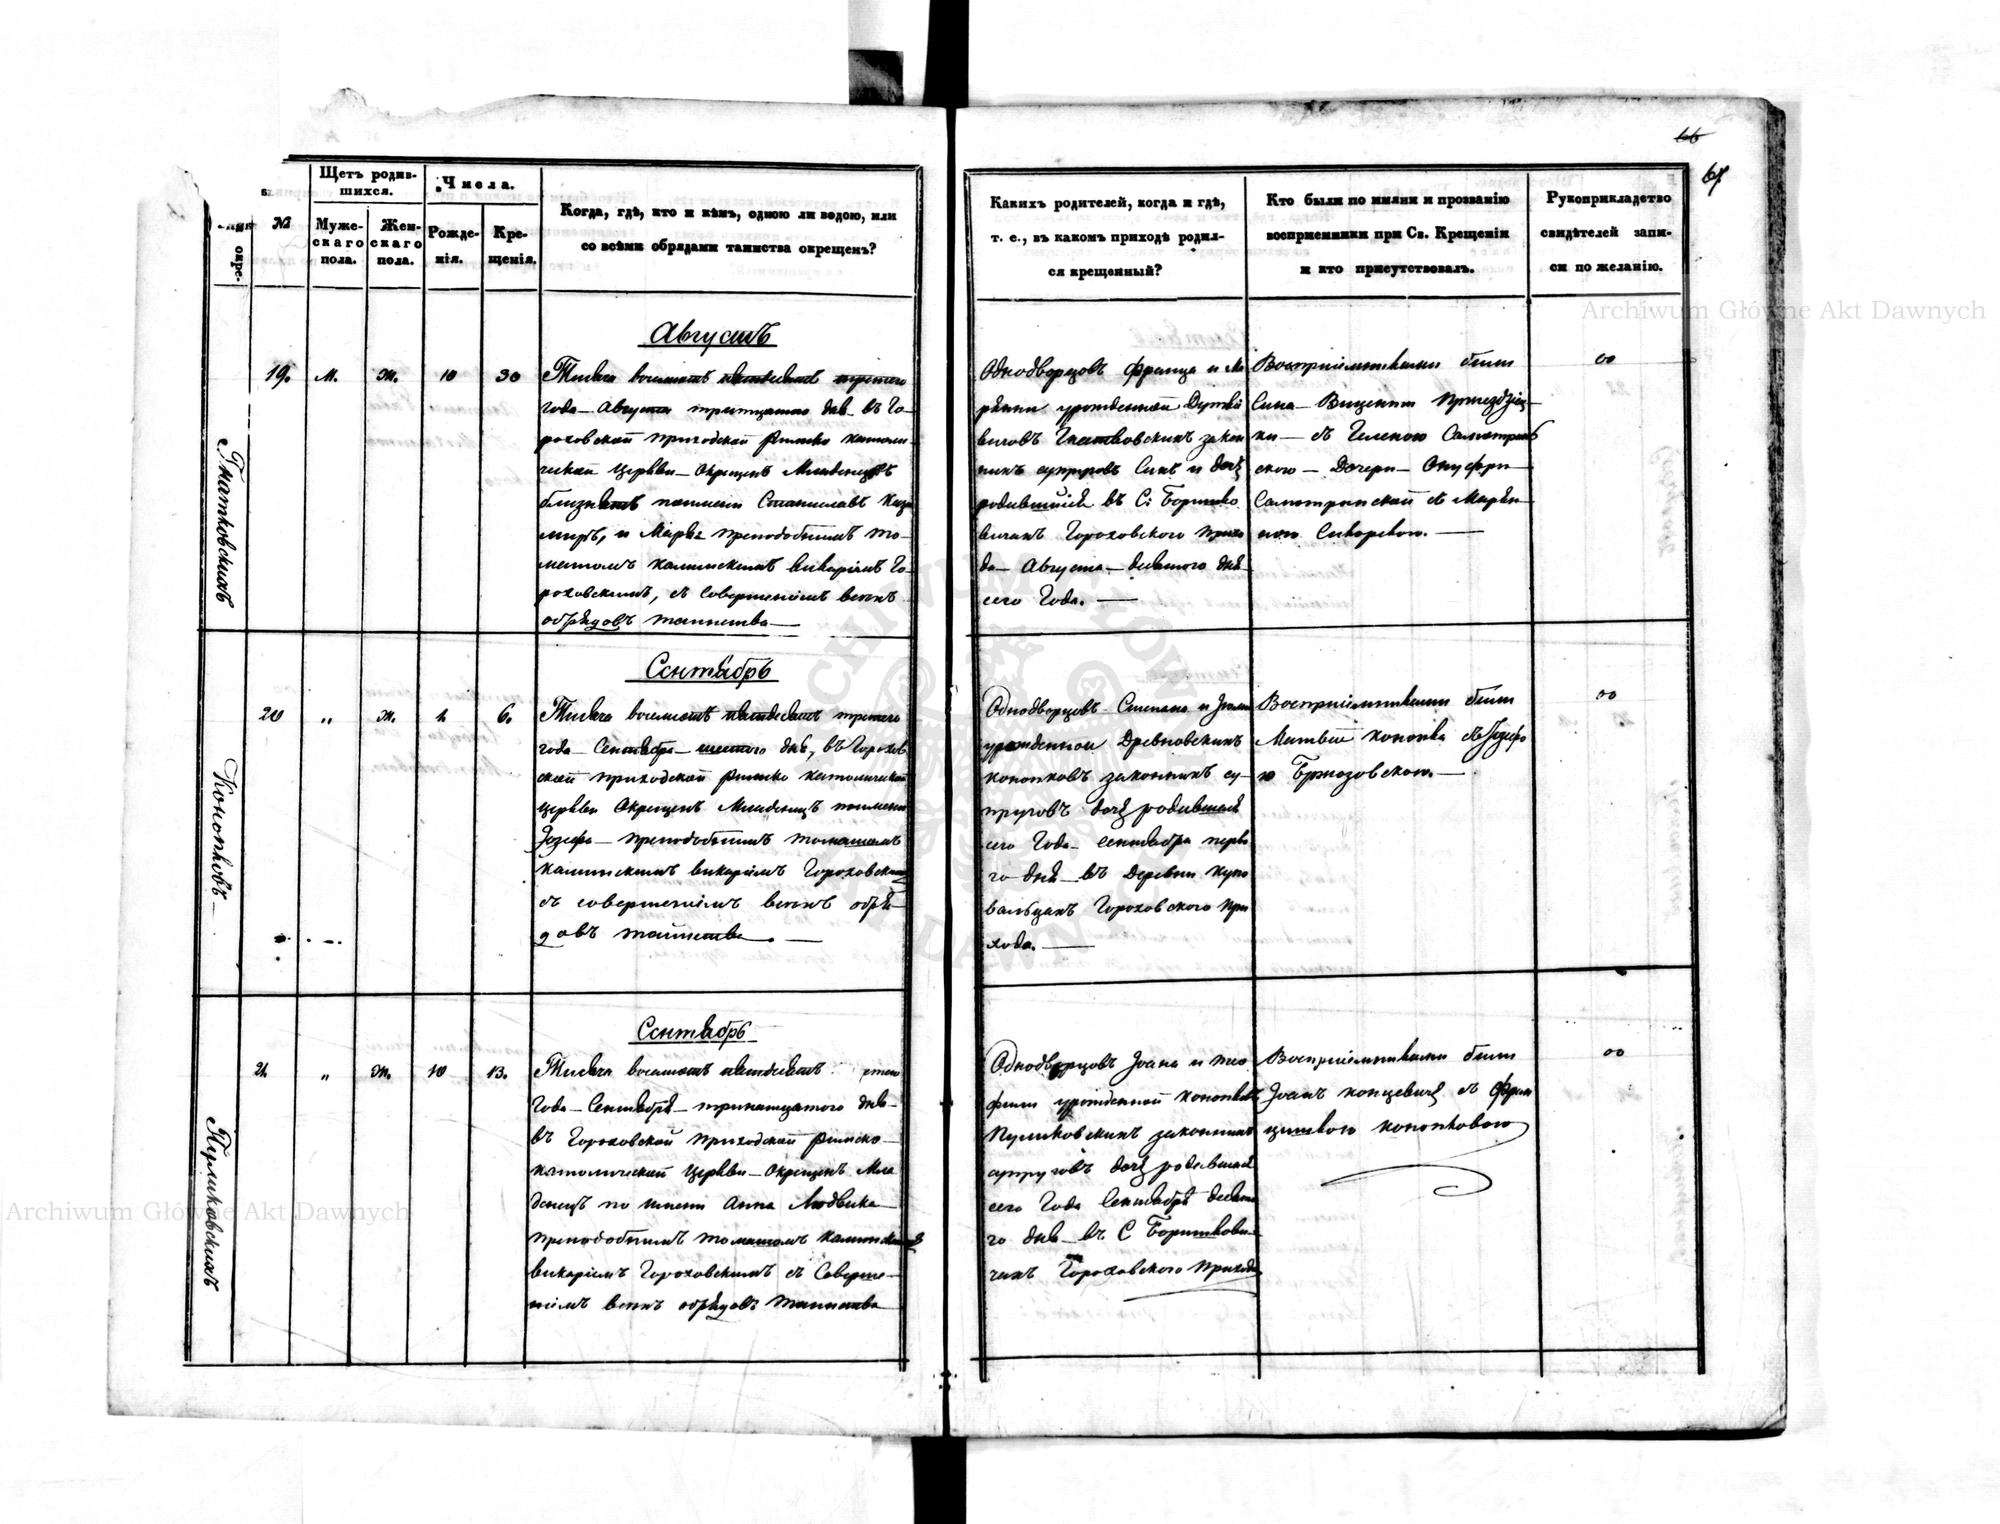 66
67
Щетъ родив-
шихся.
Числа.
№
Муже-
скаго
пола.
Жен-
скаго
пола.
Рожде-
нія.
Кре-
щенія.
Когда, гдѣ, кто и кѣмъ, одною ли водою, или
со всѣми обрядами таинства окрещенъ?
окре-
Гнатковскихъ
19.
м.
ж.
10
30
Августъ
Тысяча восемьсотъ пятьдесятъ третьего
года Августа тритцатого дня въ Го-
роховской приходской Римско католи-
ческой Церкви Окрещенъ Младенецъ
близнятъ поимени Станиславъ Кази
миръ, и Марья преподобнымъ То-
машомъ Каминскимъ викаріемъ Го-
роховскимъ, съ совершеніемъ всехъ
обрядовъ таинства
Кононковъ
20
„
ж.
1.
6.
Сентябрь
Тысяча восемьсотъ пятьдесятъ третьего
года Сентября шестого дня, въ Горохов
ской приходской Римско католической
Церкви Окрещенъ Младенецъ поимени
Іозефа преподобнымъ Томашомъ
Каминскимъ викаріемъ Гороховскимъ
съ совершеніемъ всехъ обря-
довъ таинства.
Пуликовскихъ
21.
„
ж.
10
13.
Сентябрь
Тысяча восемьсотъ пятьдесятъ
Года Сентября тринатцатого дня
въ Гороховской приходской Римско
католической Церкви Окрещенъ Мла
денецъ по имени Анна Людвика
преподобнымъ Томашомъ Каминскимъ
викаріемъ Гороховскимъ съ Соверше-
ніемъ всехъ обрядовъ таинства
Какихъ родителей, когда и гдѣ,
т. е., въ какомъ приходѣ родил-
ся крещенный?
Кто были по имяни и прозванію
воспріемники при Св. Крещеніи
и кто присутствовалъ.
Рукоприкладство
свидѣтелей запи-
си по желанію.
Однодворцовъ Франца и Ма
рьяни урожденной
Гнатковскихъ закон
ныхъ супруговъ Сынъ и дочь
родившійся въ С: Боритко
вичахъ Гороховского прихо
да Августа десятого дня
сего Года.
Воспріемниками были
Сына Вицентій
съ Геленою
Дочери Онуфри
съ Марян
ною
Однодворцовъ Степана и
урожденной Древновскихъ
Кононковъ законныхъ су-
пруговъ дочь родившаяся
сего Года Сентября перво
го дня въ деревни Куко
вальцахъ Гороховского при
хода.
Воспріемниками были
Матвей Кононка съ Іозефо
ю
Однодворцовъ Іоана и Тео
фили урожденной Кононковъ
Пуликовскихъ законныхъ
супруговъ дочь родившаяся
сего Года Сентября десято
го дня въ С Боритькови-
чахъ Гороховского прихода
Воспріемниками были
Іоанъ Концевичъ съ Фран
цишкою Кононковою
Archiwum Główne Akt Dawnych
Archiwum Główne Akt Dawnych